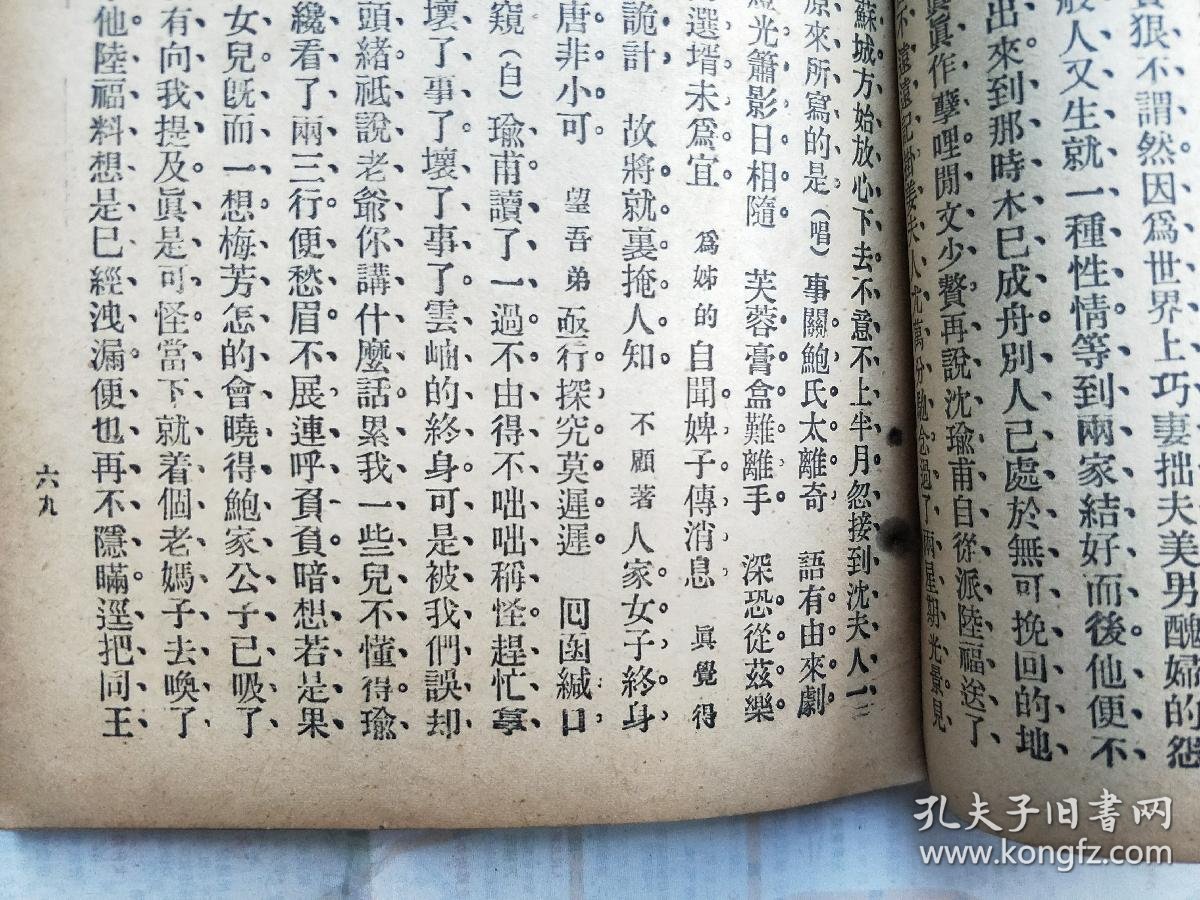 狠不謂然因爲世界上巧妻拙夫美男醜婦的怨
般人又生就一種性情等到兩家結好而後他便不
出來到那時木已成舟別人已處於無可挽回的地
眞眞作孽哩閒文少贅再說沈瑜甫自從派陸福送了
過了兩星期光景見
蘇城方始放心下去不意不上半月忽接到沈夫人一
原來所寫的是（唱）事關鮑氏太離奇　語有由來劇
燈光簫影日相隨　芙蓉膏盒難離手　深恐從茲樂
選壻未爲宜　爲姊的自聞婢子傳消息　眞覺得
詭計　故將就裏掩人知　不顧著人家女子終身
唐非小可　望吾弟亟行探究莫遲遲　囘函緘口
窺（白）瑜甫讀了一過不由得不咄咄稱怪趕忙拿
壞了事了壞了事了雲岫的終身可是被我們誤却
頭緒祗說老爺你講什麽話累我一些兒不懂得瑜
纔看了兩三行便愁眉不展連呼負負暗想若是果
女兒旣而一想梅芳怎的會曉得鮑家公子已吸了
有向我提及眞是可怪當下就着個老媽子去喚了
他陸福料想是已經洩漏便也再不隱瞞逕把同王
六九
孔夫子旧书网
www.kongfz.com